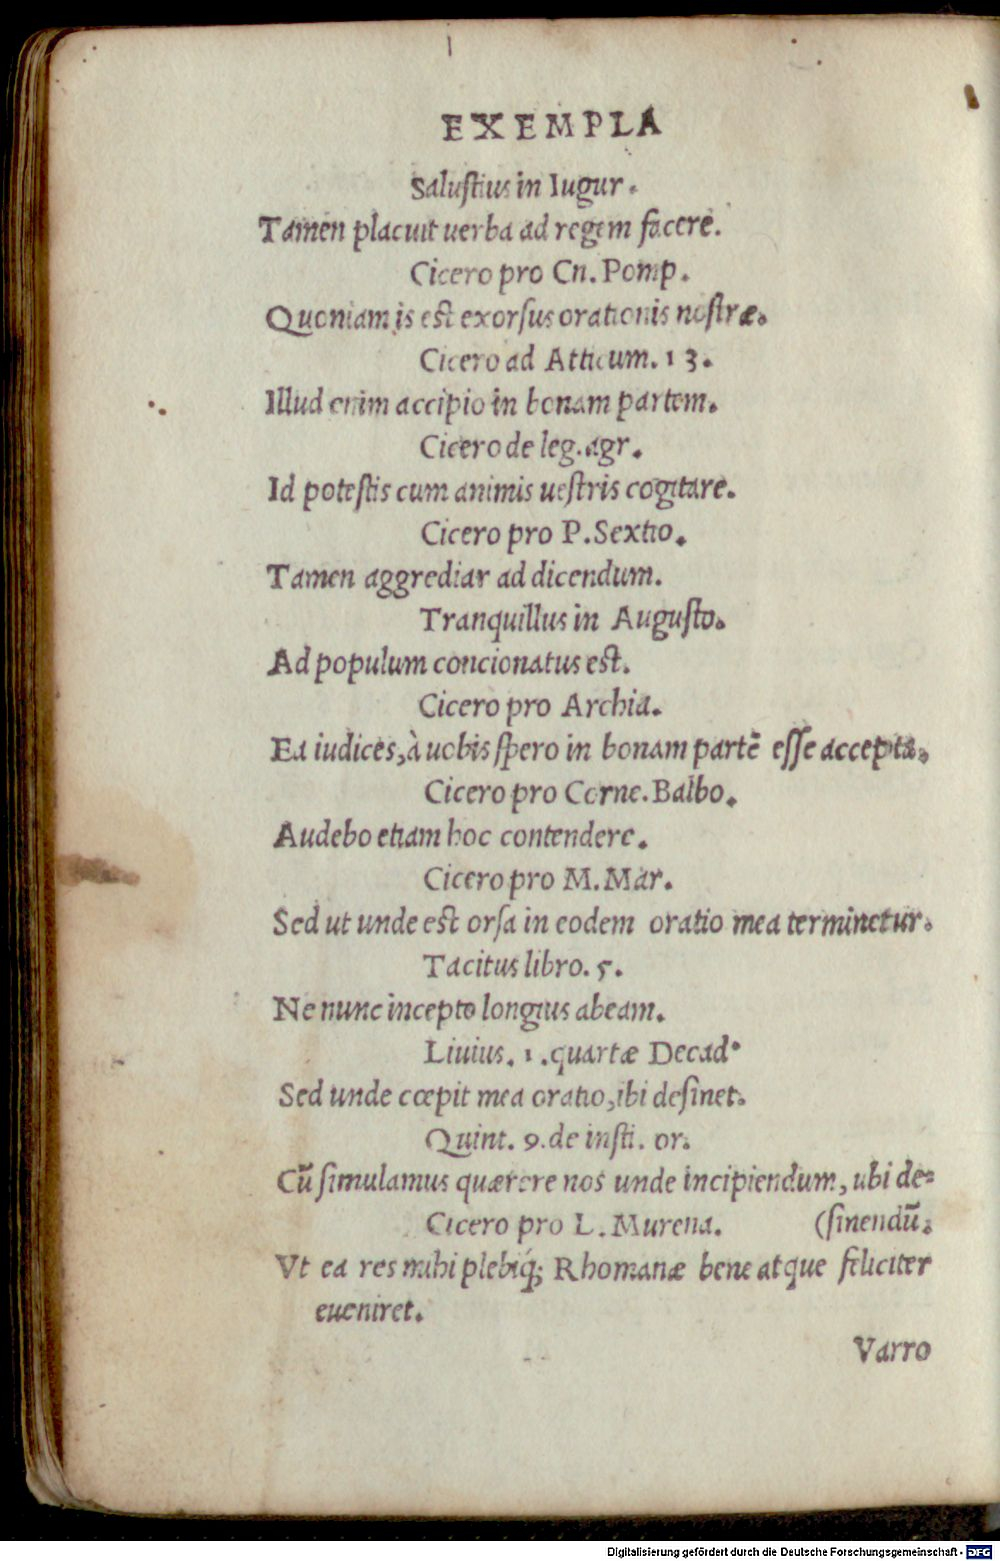 EXEMPLA
Salustius in Iugur.
Tamen placuit uerba ad regem facere.
Cicero pro Cn. Pomp.
Quoniam is est exorsus orationis nostræ.
Cicero ad Atticum. 13.
Illud enim accipio in bonam partem.
Cicero de leg. agr.
Id potestis cum animis uestris cogitare.
Cicero pro P. Sextio.
Tamen aggrediar ad dicendum.
Tranquillus in Augusto.
Ad populum concionatus est.
Cicero pro Archia.
Ea iudices, à uobis spero in bonam partē esse accepta.
Cicero pro Corne. Balbo.
Audebo etiam hoc contendere.
Cicero pro M. Mar.
Sed ut unde est orsa in eodem oratio mea terminetur.
Tacitus libro. 5.
Ne nunc incepto longius abeam.
Liuius. 1. quartæ Decad.
Sed unde cœpit mea oratio, ibi desinet.
Quint. 9. de insti. or.
Cū simulamus quærere nos unde incipiendum, ubi de=
Cicero pro L. Murena. (sinendū.
Vt ea res mihi plebiq́; Rhomanæ bene atque feliciter
eueniret.
Varro
Digitalisierung gefördert durch die Deutsche Forschungsgemeinschaft - DFG